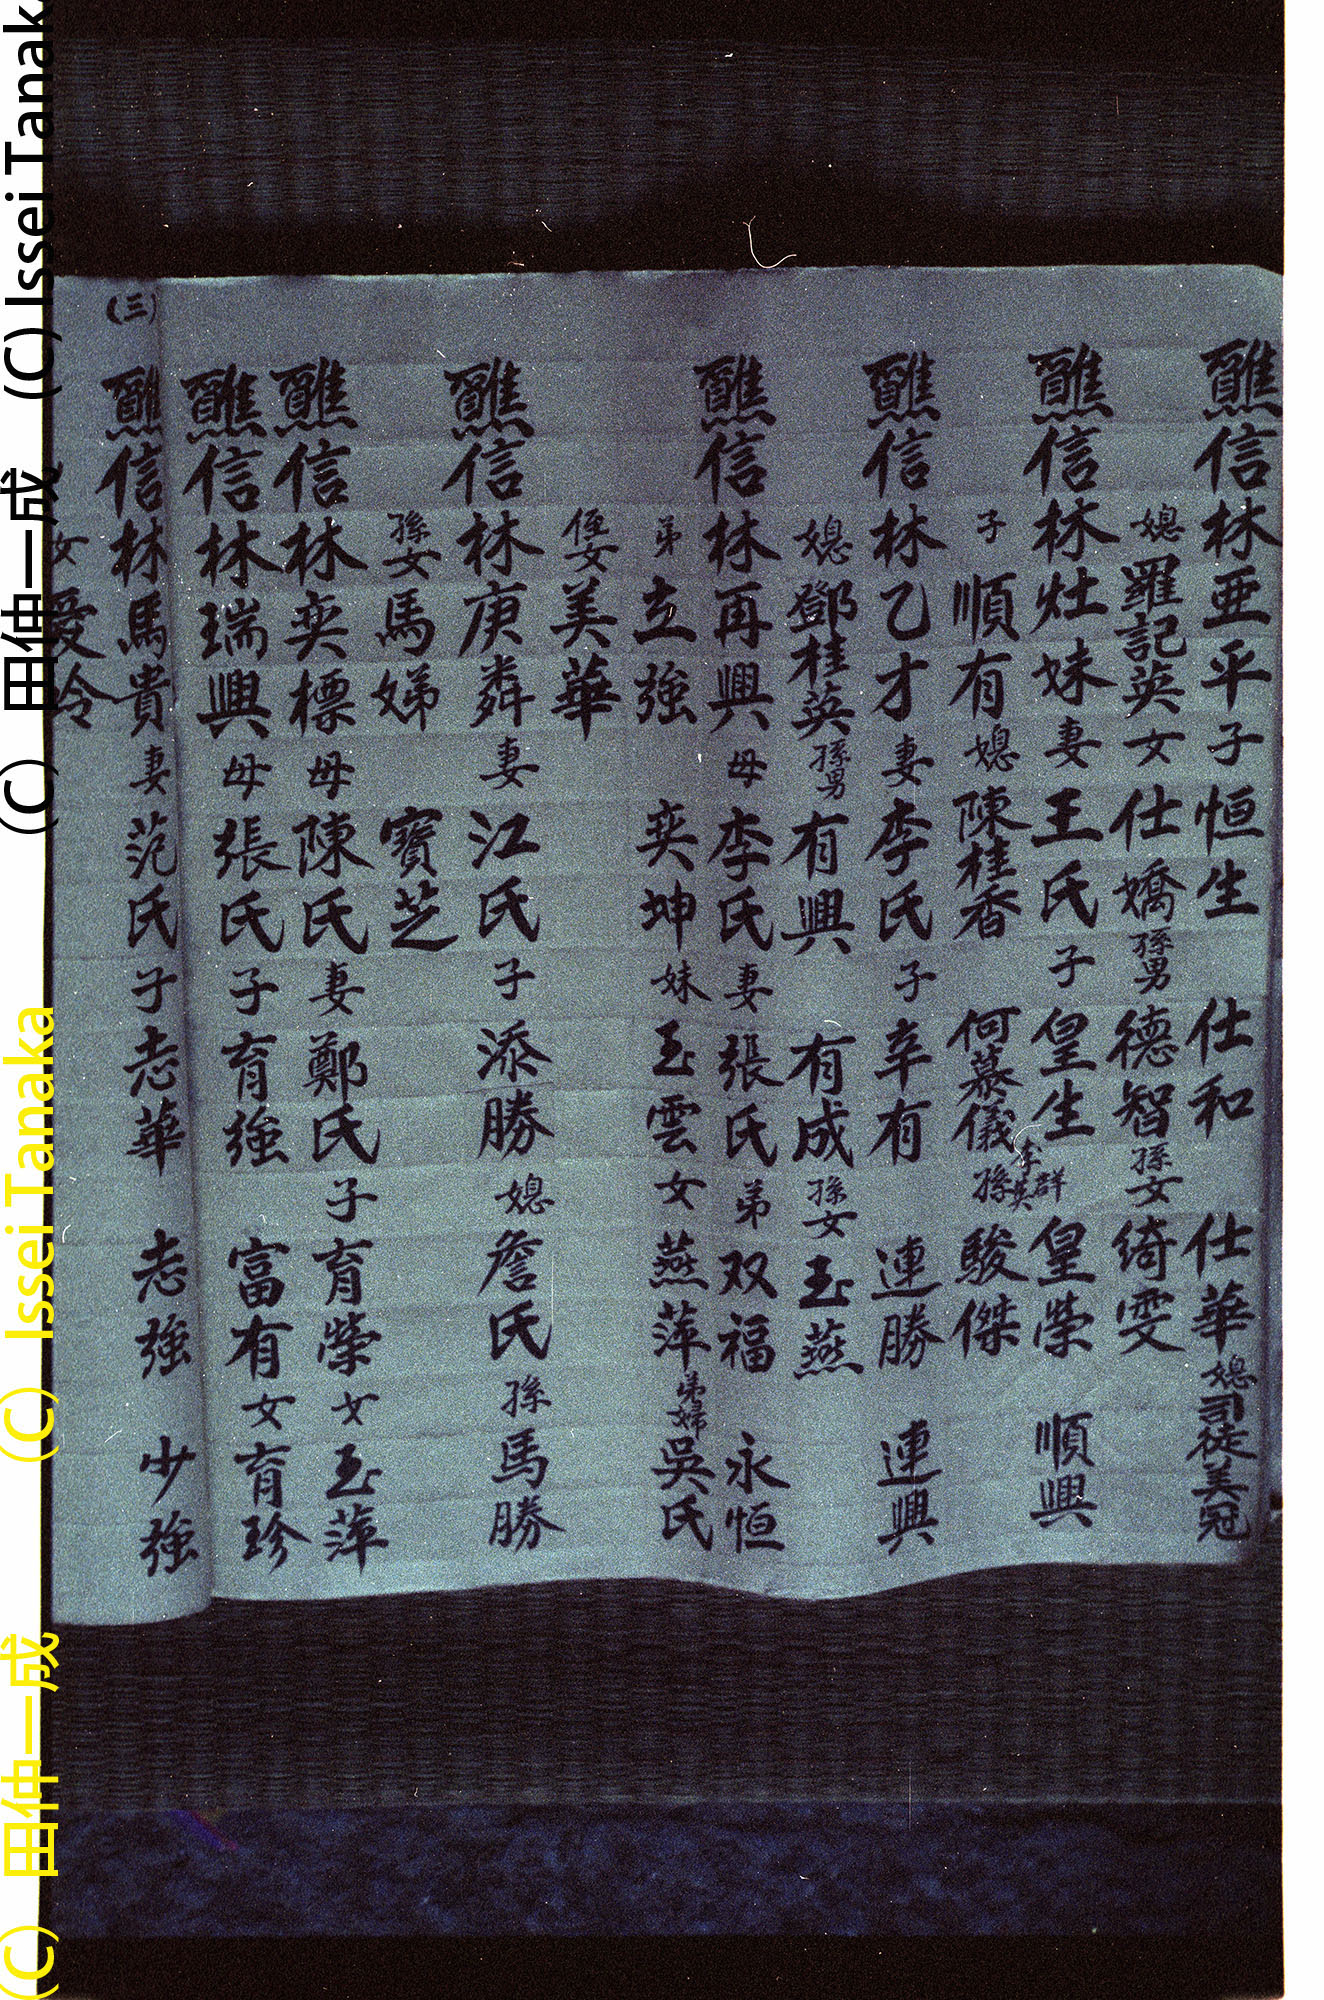 醮信林亜平子恒生 仕和 仕華媳司徒美冠
媳羅記英女仕嬌孫男德智孫女綺雯
醮信林灶妹妻王氏子皇生 皇榮 順興
子順有媳陳桂香 何慕儀孫駿傑
醮信林乙才妻李氏子辛有 連勝 連興
媳鄧桂英孫男有興 有成孫女玉燕
醮信林再興母李氏妻張氏弟双福 永恒
弟立強 奕坤妹玉雲女燕萍弟婦吳氏
侄女美華
醮信林庚粦妻江氏子添勝媳詹氏孫馬勝
孫女馬娣 寶芝
醮信林奕標母陳氏妻鄭氏子育榮女玉萍
醮信林瑞興母張氏子育強 富有女育珍
(三)
醮信林馬貴妻范氏子志華 志強 少強
女愛玲
(C) 田仲一成 (C) Issei Tanaka
(C) 田仲一成 (C) Issei Tanaka